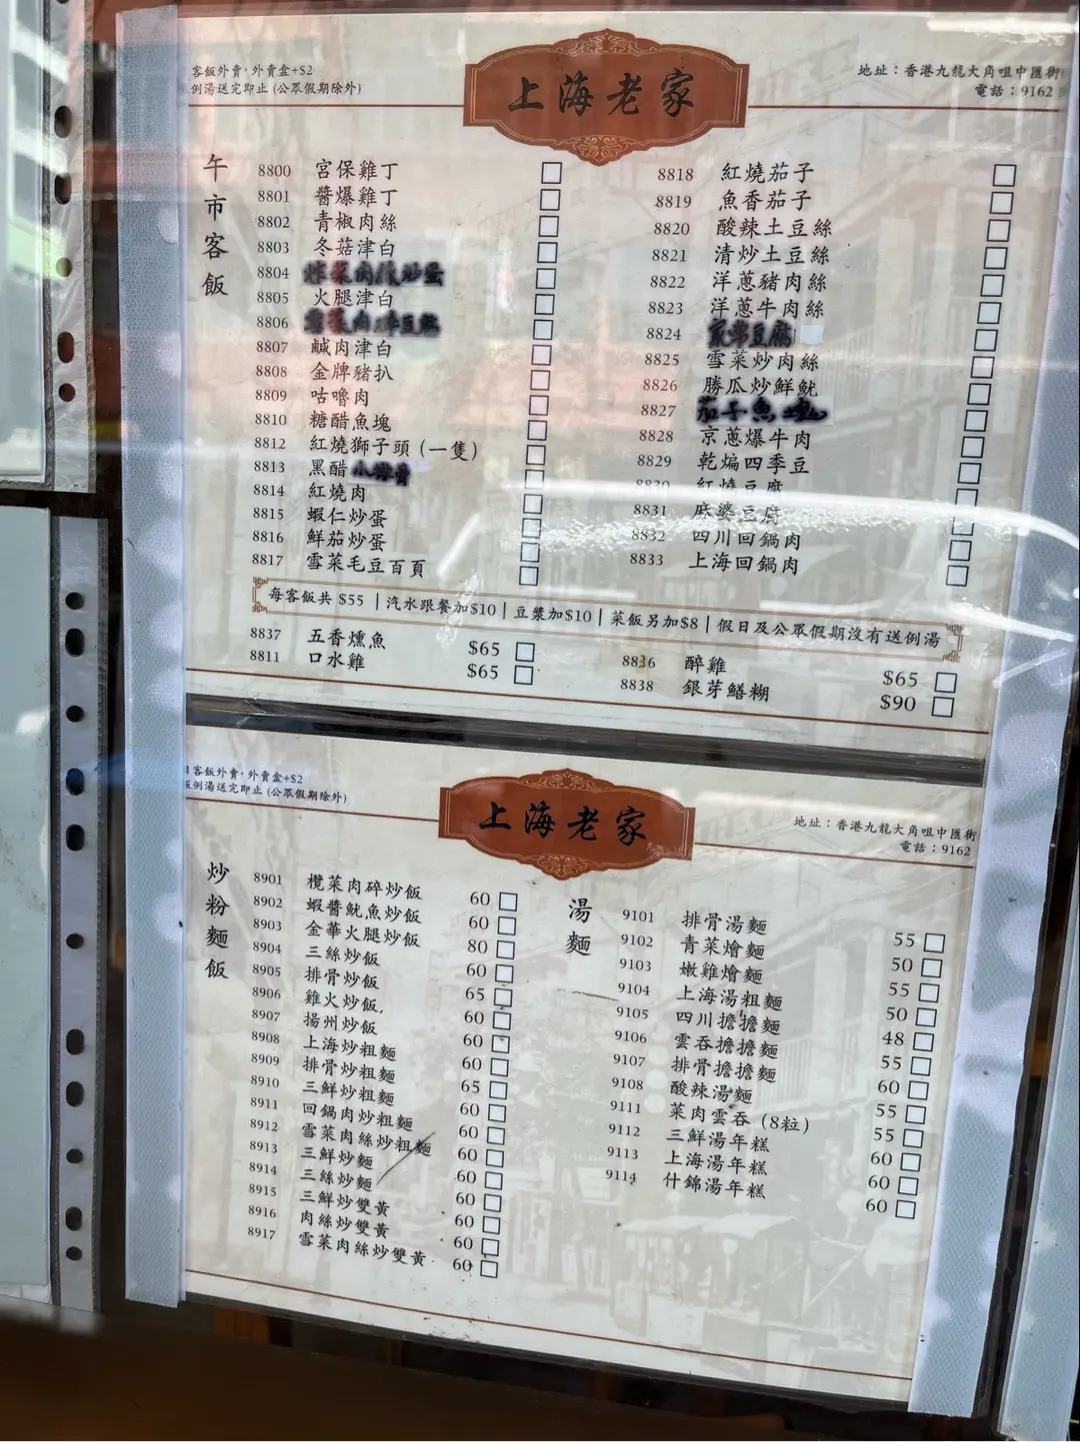 客飯外賣，外賣盒+$2
例湯送完即止 (公眾假期除外)
上海老家
地址：香港九龍大角咀中匯街
電話：9162
午市客飯
8800 宮保雞丁
8801 醬爆雞丁
8802 青椒肉絲
8803 冬菇津白
8804 炒蛋
8805 火腿津白
8806
8807 鹹肉津白
8808 金牌豬扒
8809 咕嚕肉
8810 糖醋魚塊
8812 紅燒獅子頭 (一隻)
8813 黑醋小排骨
8814 紅燒肉
8815 蝦仁炒蛋
8816 鮮茄炒蛋
8817 雪菜毛豆百頁
8818 紅燒茄子
8819 魚香茄子
8820 酸辣土豆絲
8821 清炒土豆絲
8822 洋蔥豬肉絲
8823 洋蔥牛肉絲
8824 家常豆腐
8825 雪菜炒肉絲
8826 勝瓜炒鮮魷
8827 茄子魚塊
8828 京蔥爆牛肉
8829 乾煸四季豆
8830 紅燒豆腐
8831 麻婆豆腐
8832 四川回鍋肉
8833 上海回鍋肉
每客飯共 $55 | 汽水跟餐加$10 | 豆漿加$10 | 菜飯另加$8 | 假日及公眾假期沒有送例湯
8837 五香燻魚 $65
8811 口水雞 $65
8836 醉雞 $65
8838 銀芽鱔糊 $90
客飯外賣，外賣盒+$2
例湯送完即止 (公眾假期除外)
上海老家
地址：香港九龍大角咀中匯街
電話：9162
炒粉麵飯
8901 欖菜肉碎炒飯 60
8902 蝦醬魷魚炒飯 60
8903 金華火腿炒飯 80
8904 三絲炒飯 60
8905 排骨炒飯 65
8906 雞火炒飯 60
8907 揚州炒飯 60
8908 上海炒粗麵 60
8909 排骨炒粗麵 65
8910 三鮮炒粗麵 60
8911 回鍋肉炒粗麵 60
8912 雪菜肉絲炒粗麵 60
8913 三鮮炒麵 60
8914 三絲炒麵 60
8915 三鮮炒雙黃 60
8916 肉絲炒雙黃 60
8917 雪菜肉絲炒雙黃 60
湯麵
9101 排骨湯麵 55
9102 青菜燴麵 50
9103 嫩雞燴麵 55
9104 上海湯粗麵 50
9105 四川擔擔麵 48
9106 雲吞擔擔麵 55
9107 排骨擔擔麵 60
9108 酸辣湯麵 55
9111 菜肉雲吞 (8粒) 55
9112 三鮮湯年糕 60
9113 上海湯年糕 60
9114 什錦湯年糕 60